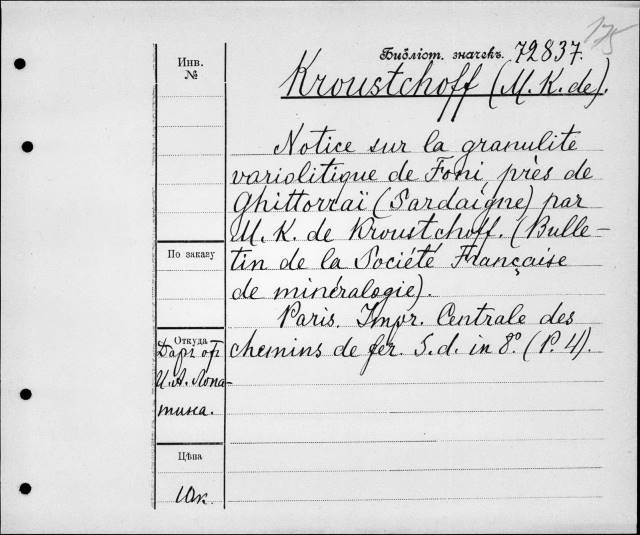 175
Библіот. значекъ. 72837.
Инв.
№
Kroustchoff (M. K. de).
Notice sur la granulite
variolitique de Foni près de
Ghittorraï (Sardaigne) par
M. K. de Kroustchoff. (Bulle-
tin de la Société Française
de minéralogie).
Paris. Impr. Centrale des
chemins de fer. S.d. in 8º. (P. 4).
По заказу
Откуда
Даръ отъ
И. А. Лопа-
тина.
Цѣна
10к.